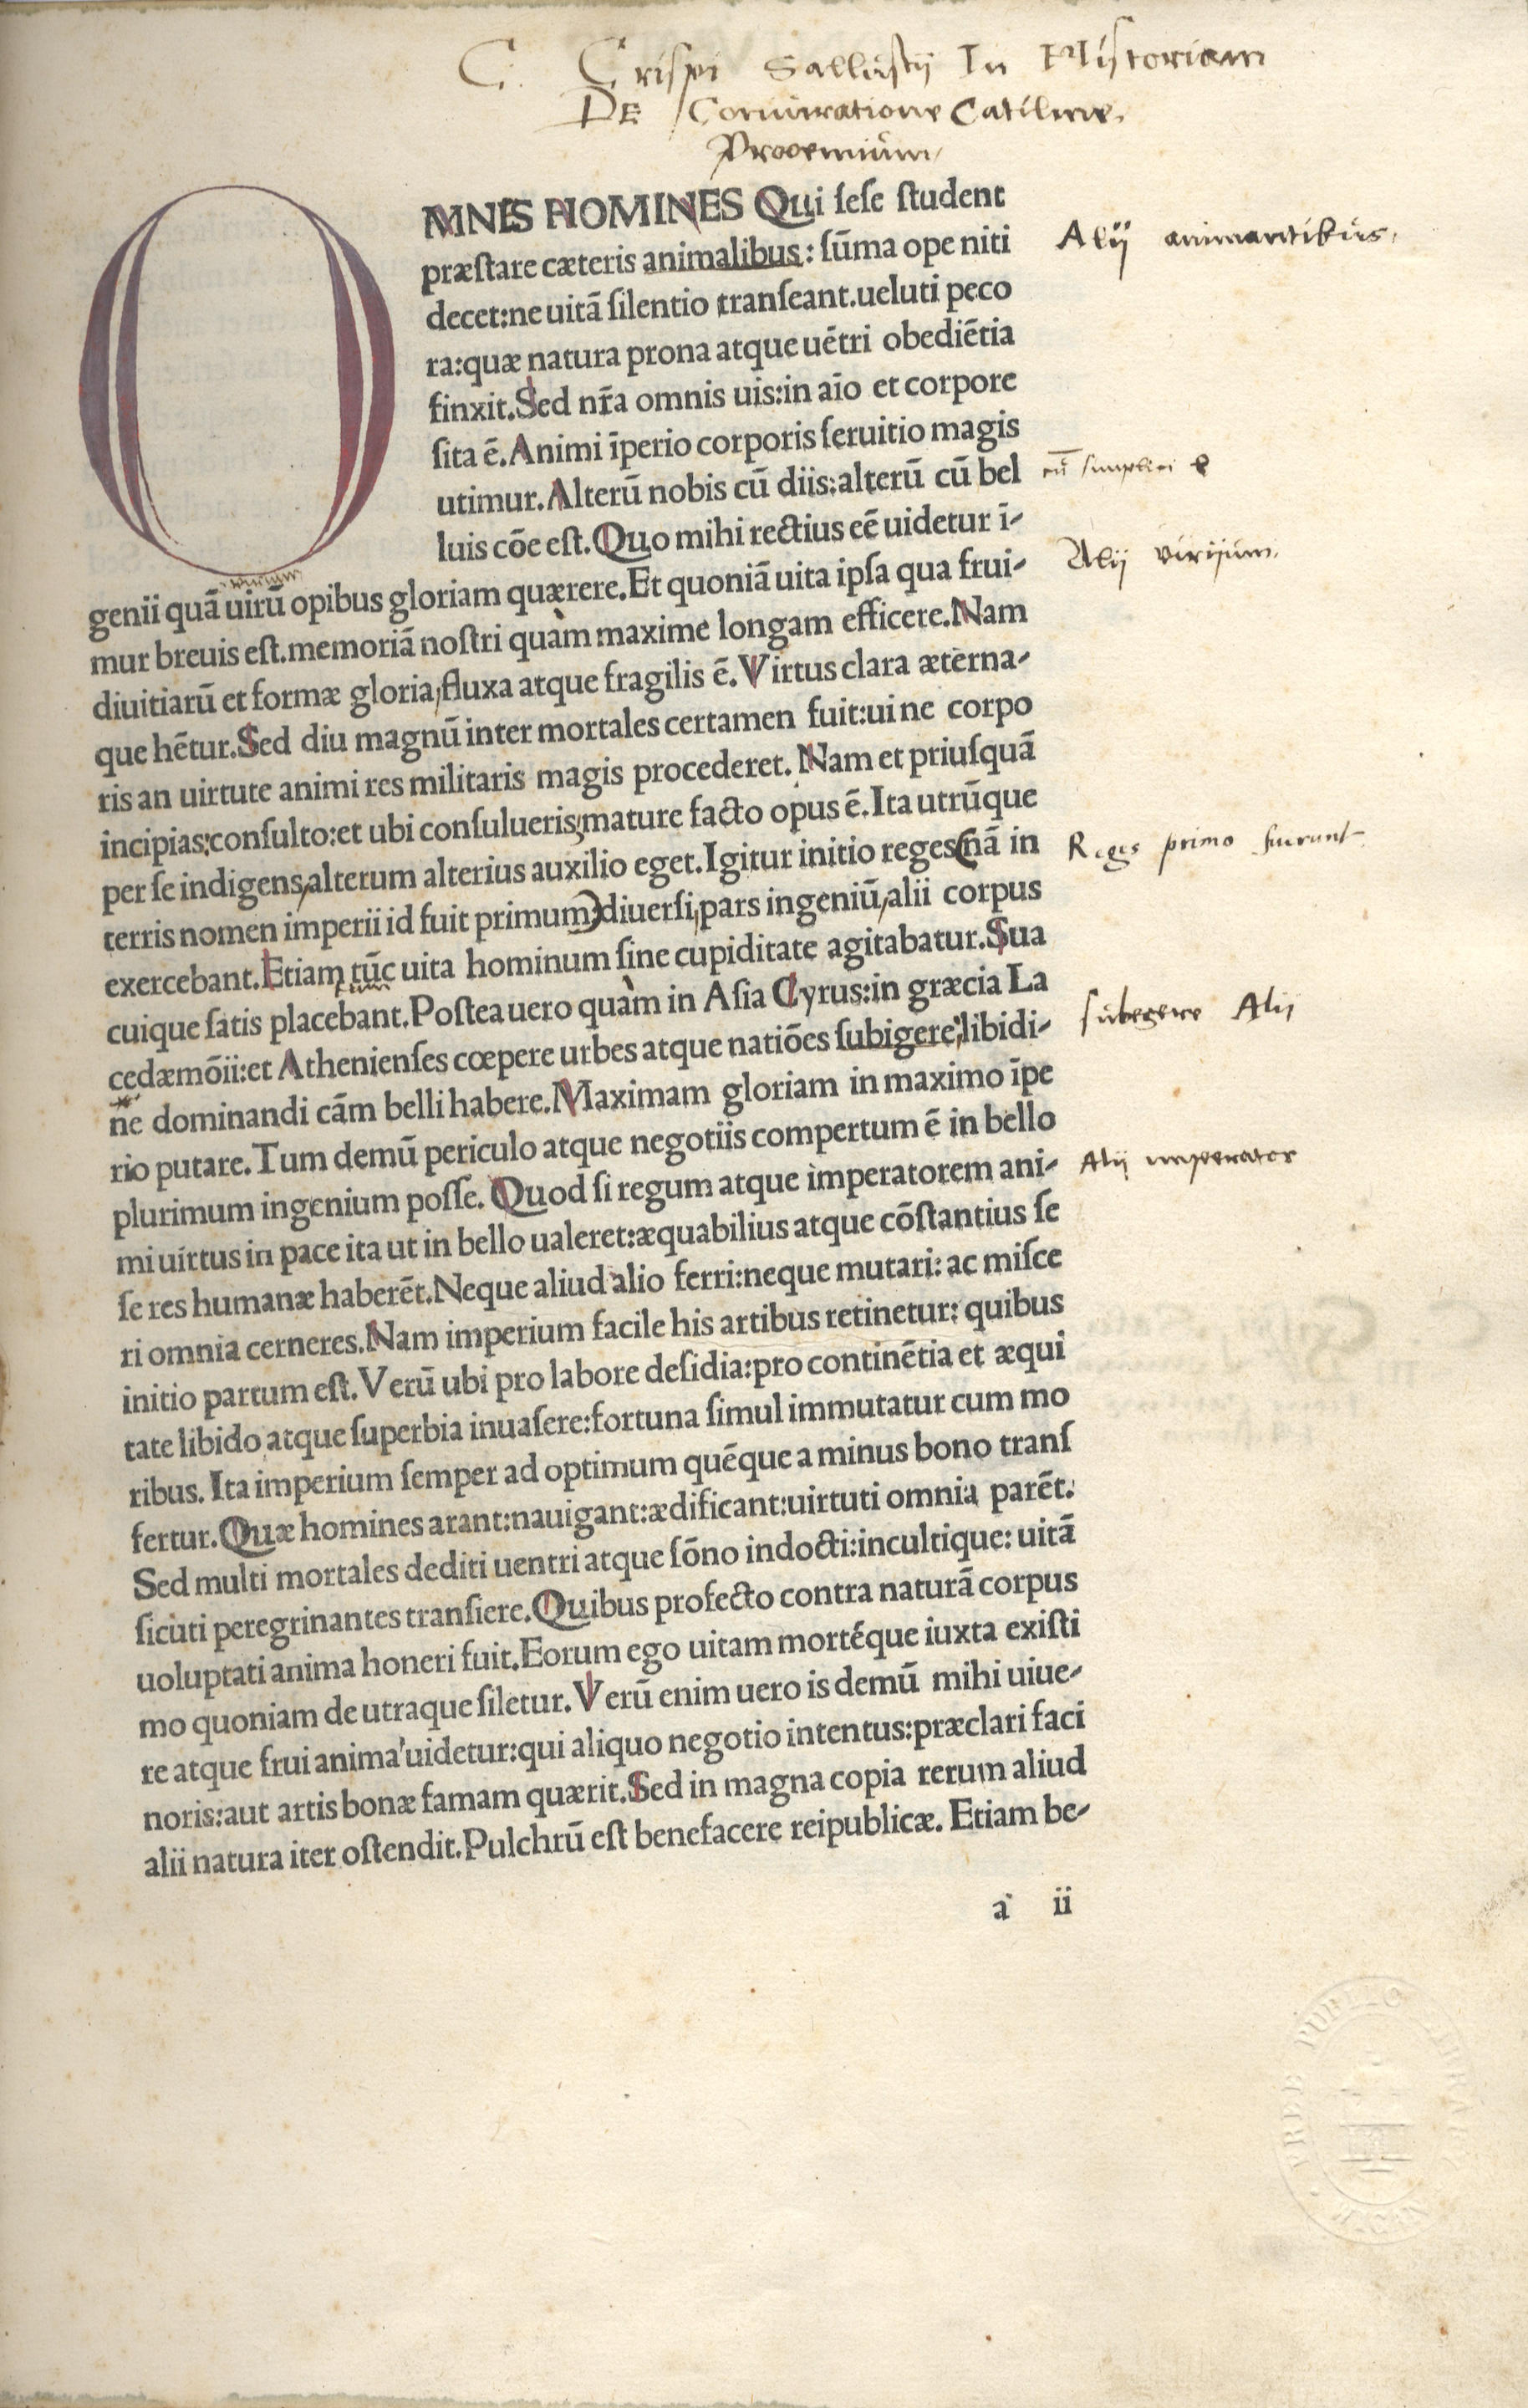 C. Crispi Sallustij In Historiam
DE Coniuratione Catiline.
Prooemium
OMNIS HOMINES Qui ſeſe ſtudent
præſtare cæteris animalibus: ſūma ope niti
Alij animantibus.
decet:ne uitā ſilentio tranſeant.ueluti peco
ra:quæ natura prona atque uētri obediētia
finxit.Sed nr̄a omnis uis:in aīo et corpore
ſita ē.Animi īperio corporis ſeruitio magis
utimur.Alterū nobis cū diis:alterū cū bel
cū simplici
luis cōe eſt.Quo mihi rectius eē uidetur ī-
Alij virijum.
virium
genii quā uirū opibus gloriam quærere.Et quoniā uita ipſa qua frui-
mur breuis eſt.memoriā noſtri quàm maxime longam efficere.Nam
diuitiarū et formæ gloria,fluxa atque fragilis ē.Virtus clara æterna-
que hētur.Sed diu magnū inter mortales certamen fuit:ui ne corpo
ris an uirtute animi res militaris magis procederet. Nam et priuſquā
incipias:conſulto:et ubi conſulueris,mature facto opus ē.Ita utrūque
per ſe indigens,alterum alterius auxilio eget.Igitur initio reges(nā in
Reges primo fuerunt
terris nomen imperii id fuit primum)diuerſi,pars ingeniū,alii corpus
exercebant.Etiam tūc uita hominum ſine cupiditate agitabatur.Sua
cuique ſatis placebant.Poſtea uero quàm in Aſia Cyrus:in græcia La
cedæmōii:et Athenienſes cœpere urbes atque natiōes ſubigere,libidi-
subegere Alij
ne dominandi cām belli habere.Maximam gloriam in maximo īpe
rio putare.Tum demū periculo atque negotiis compertum ē in bello
plurimum ingenium poſſe. Quod ſi regum atque imperatorem ani-
Alij imperator
mi uirtus in pace ita ut in bello ualeret:æquabilius atque cōſtantius ſe
ſe res humanæ haberēt.Neque aliud alio ferri:neque mutari: ac miſce
ri omnia cerneres.Nam imperium facile his artibus retinetur: quibus
initio partum eſt.Verū ubi pro labore deſidia:pro continētia et æqui
tate libido atque ſuperbia inuaſere:fortuna ſimul immutatur cum mo
ribus. Ita imperium ſemper ad optimum quēque a minus bono tranſ
fertur.Quæ homines arant:nauigant:ædificant:uirtuti omnia parēt.
Sed multi mortales dediti uentri atque ſōno indocti:incultique: uitā
ſicuti peregrinantes tranſiere.Quibus profecto contra naturā corpus
uoluptati anima honeri fuit.Eorum ego uitam mortéque iuxta exiſti
mo quoniam de utraque ſiletur. Verū enim uero is demū mihi uiue-
re atque frui anima uidetur:qui aliquo negotio intentus:præclari faci
noris:aut artis bonæ famam quærit.Sed in magna copia rerum aliud
alii natura iter oſtendit.Pulchrū eſt benefacere reipublicæ. Etiam be-
a ii
FREE PUBLIC LIBRARY